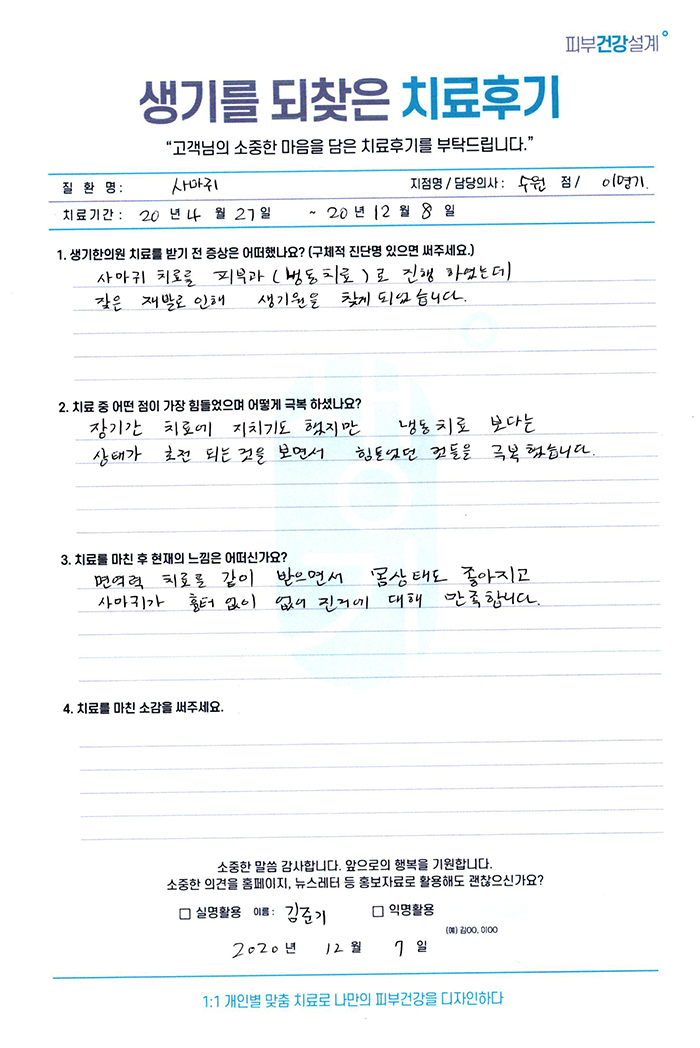 피부건강설계
생기를 되찾은 치료후기
“고객님의 소중한 마음을 담은 치료후기를 부탁드립니다.”
질 환 명 : 사마귀 지점명 / 담당의사 : 수원 점 / 이명기.
치료기간 : 20 년 4 월 27 일 ~ 20 년 12 월 8 일
1. 생기한의원 치료를 받기 전 증상은 어떠했나요? (구체적 진단명 있으면 써주세요.)
사마귀 치료를 피부과 (냉동치료)로 진행 하였는데
잦은 재발로 인해 생기원을 찾게 되었습니다.
2. 치료 중 어떤 점이 가장 힘들었으며 어떻게 극복 하셨나요?
장기간 치료에 지치기도 했지만 냉동치료 보다는
상태가 호전 되는 것을 보면서 힘들었던 것들을 극복했습니다.
3. 치료를 마친 후 현재의 느낌은 어떠신가요?
면역력 치료를 같이 받으면서 몸상태도 좋아지고
사마귀가 흉터 없이 없어 진거에 대해 만족합니다.
4. 치료를 마친 소감을 써주세요.
생기
소중한 말씀 감사합니다. 앞으로의 행복을 기원합니다.
소중한 의견을 홈페이지, 뉴스레터 등 홍보자료로 활용해도 괜찮으신가요?
실명활용 이름 : 김준기 익명활용
(예) 김OO, 이OO
2020 년 12 월 7 일
1:1 개인별 맞춤 치료로 나만의 피부건강을 디자인하다